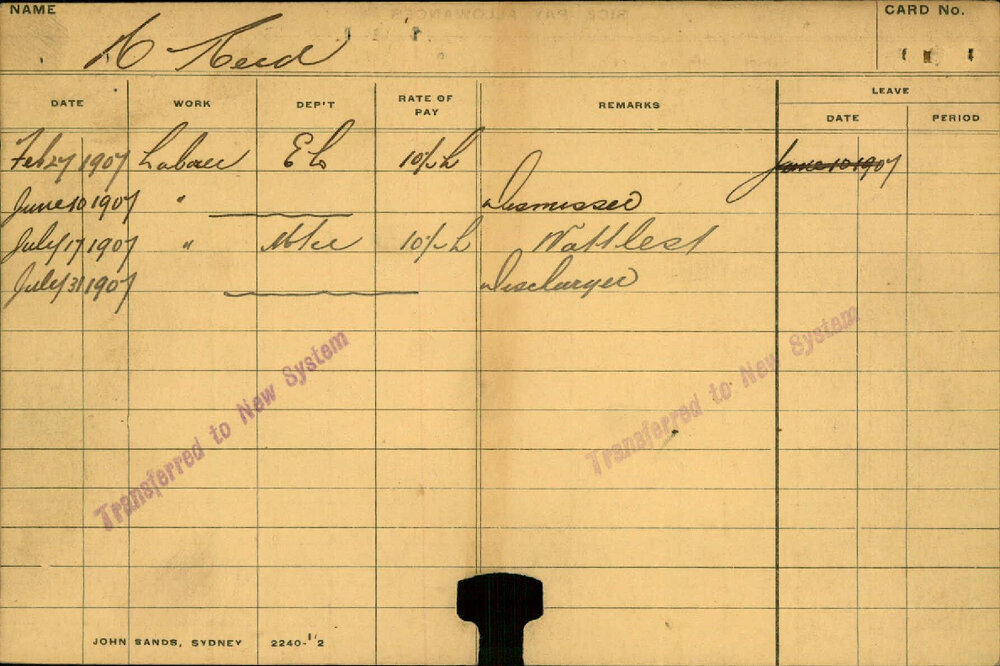 NAME CARD No.
Reed
DATE WORK DEP'T RATE OF PAY REMARKS LEAVE
DATE PERIOD
Feb 27 1907 Labour EL June 10 1907
June 10 1907 " Dismissed
July 17 1907 "
July 31 1907 Discharged
Transferred to New System
Transferred to New System
JOHN SANDS, SYDNEY 2240-